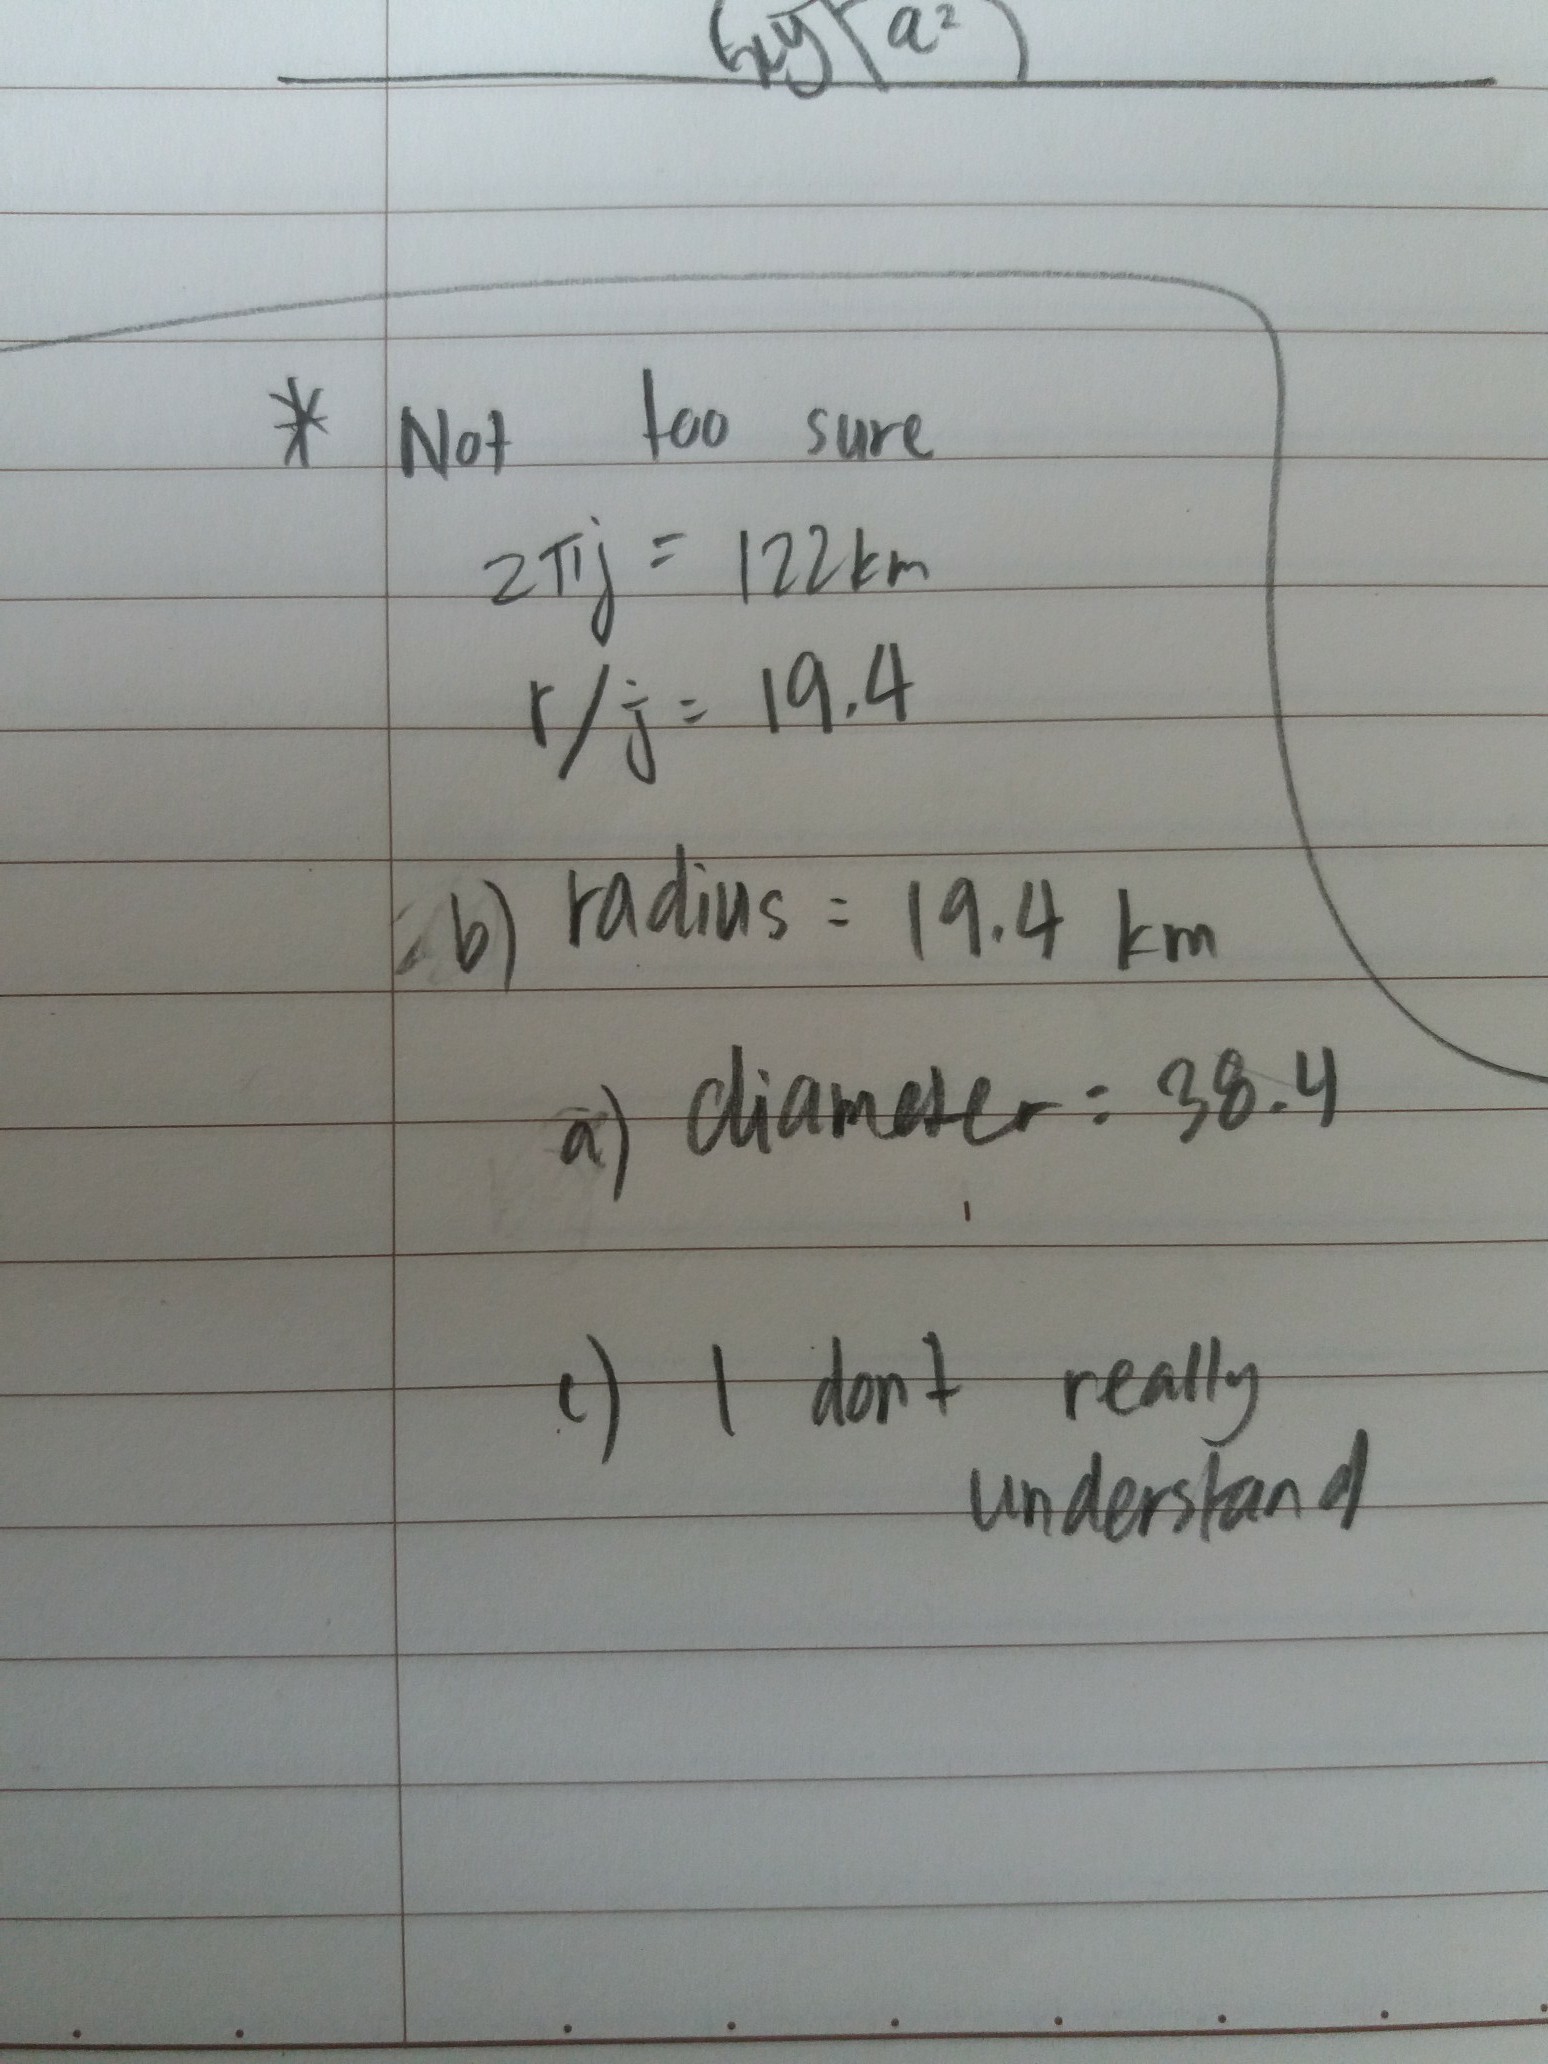 a²
* Not too sure
2πj = 122km
r/j = 19.4
b) radius = 19.4 km
a) diameter = 38.4
c) I dont really
understand